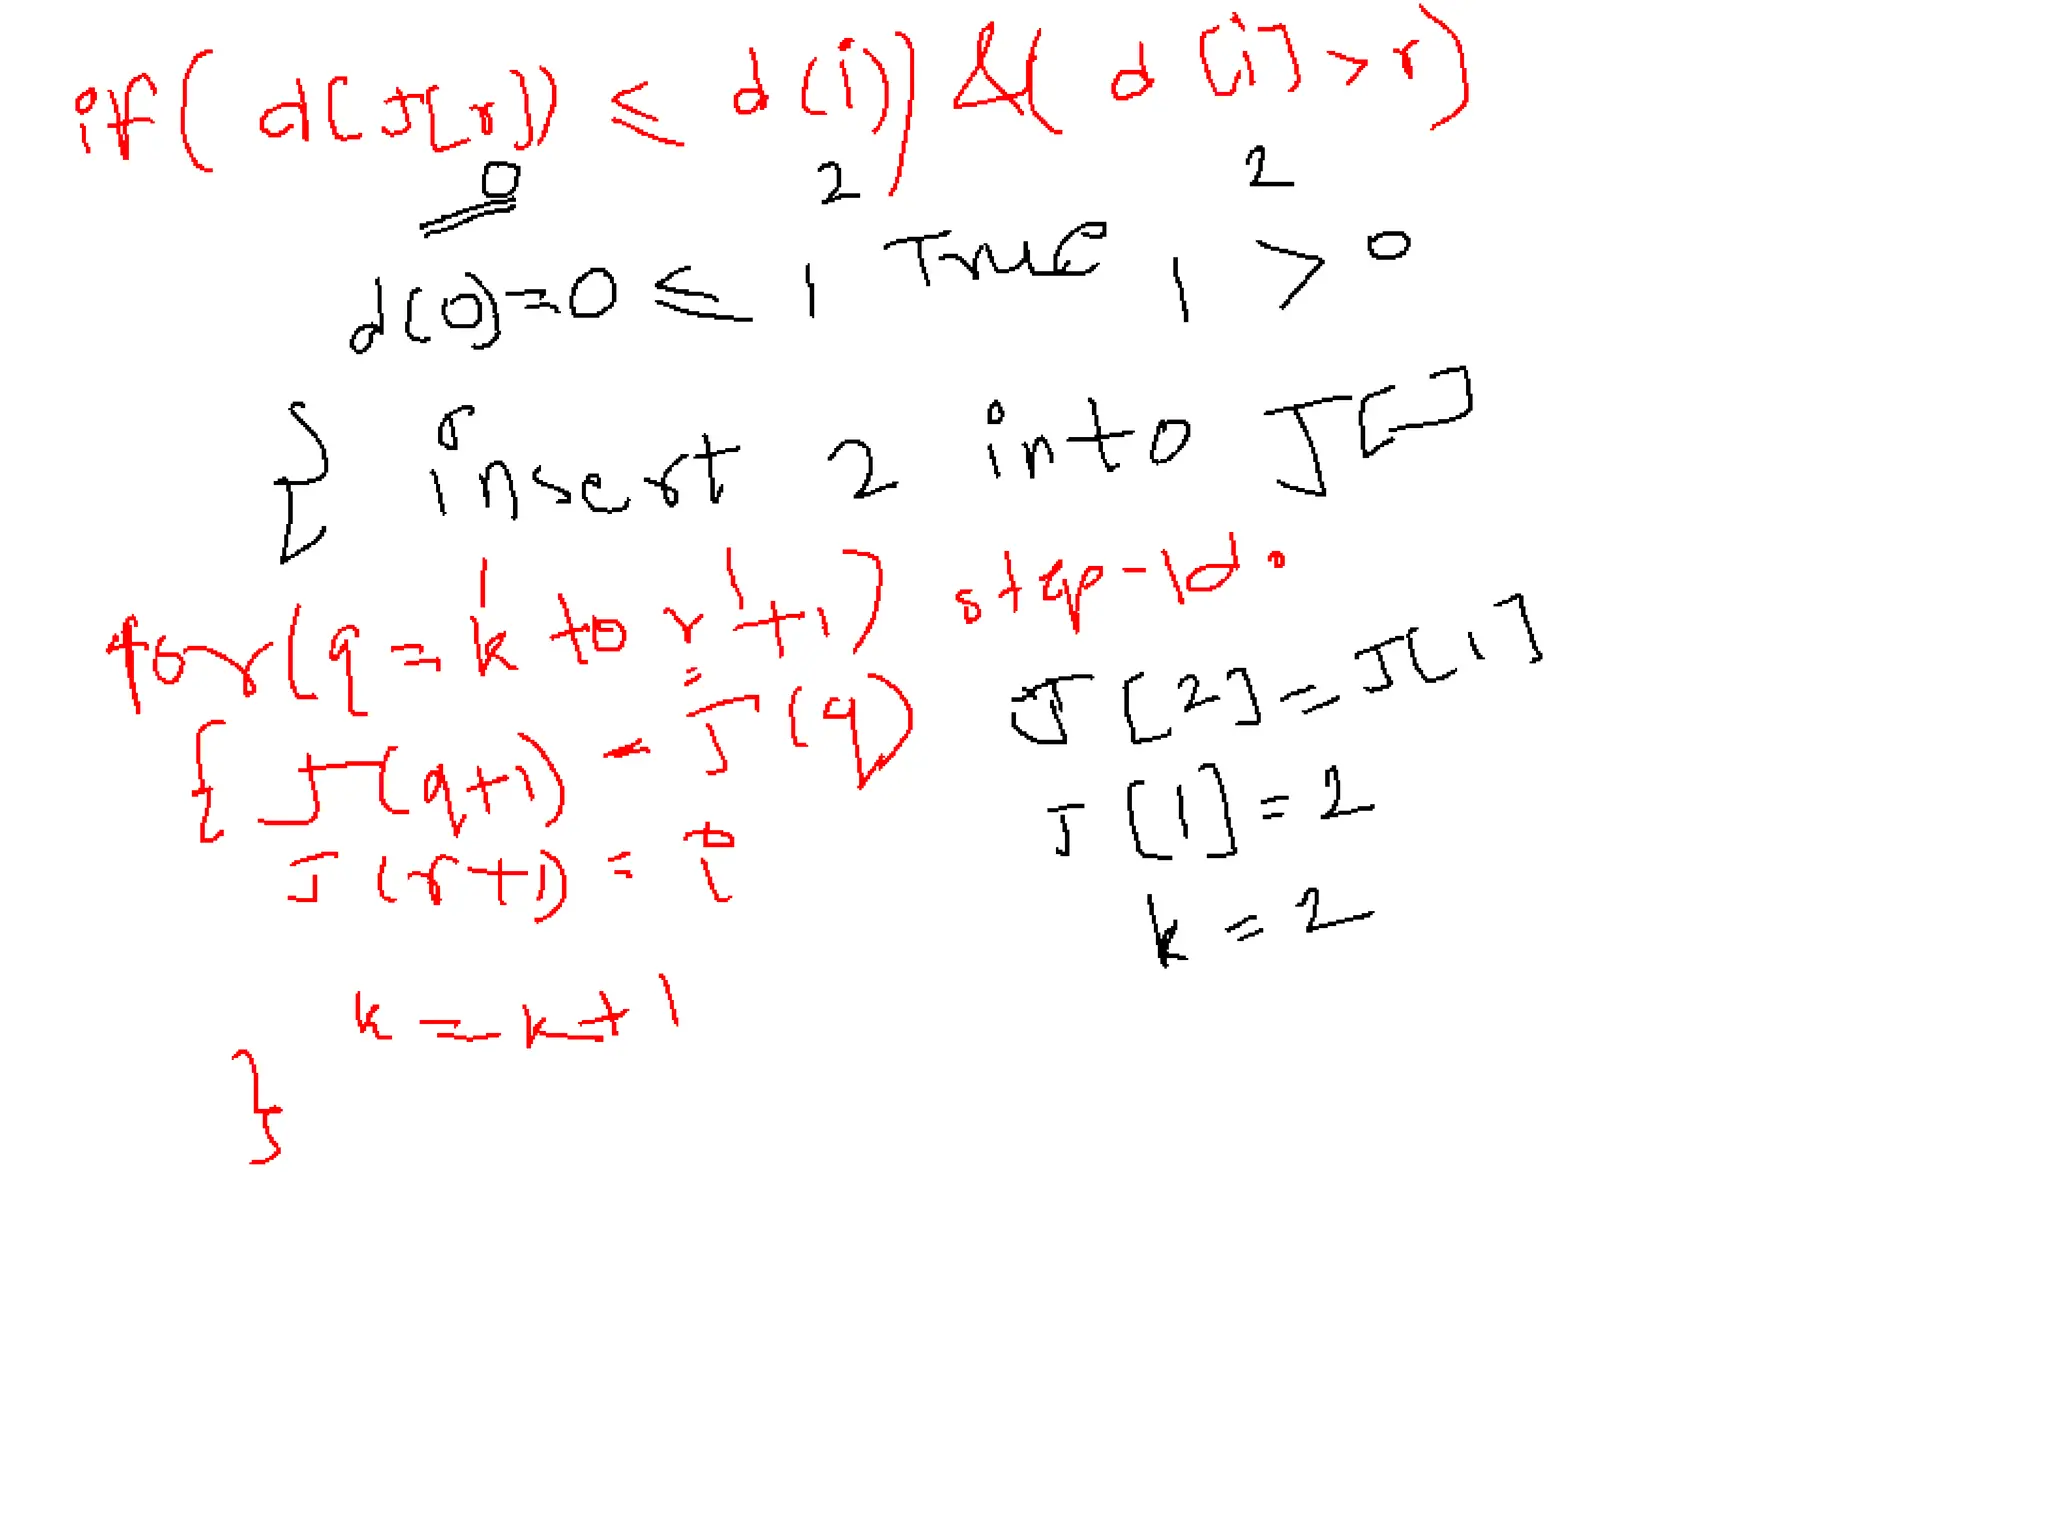 if( d[J[r]) ≤ d(i)) &( d [i] > r)
0 2 2
d(0)=0 ≤ 1 True 1 > 0
} insert 2 into J[]
1 1
for(q = k to r+1) step-1do
{ J(q+1) = J(q) J[2] = J[1]
J(r+1) = i J[1] = 2
k = 2
k = k+1
}